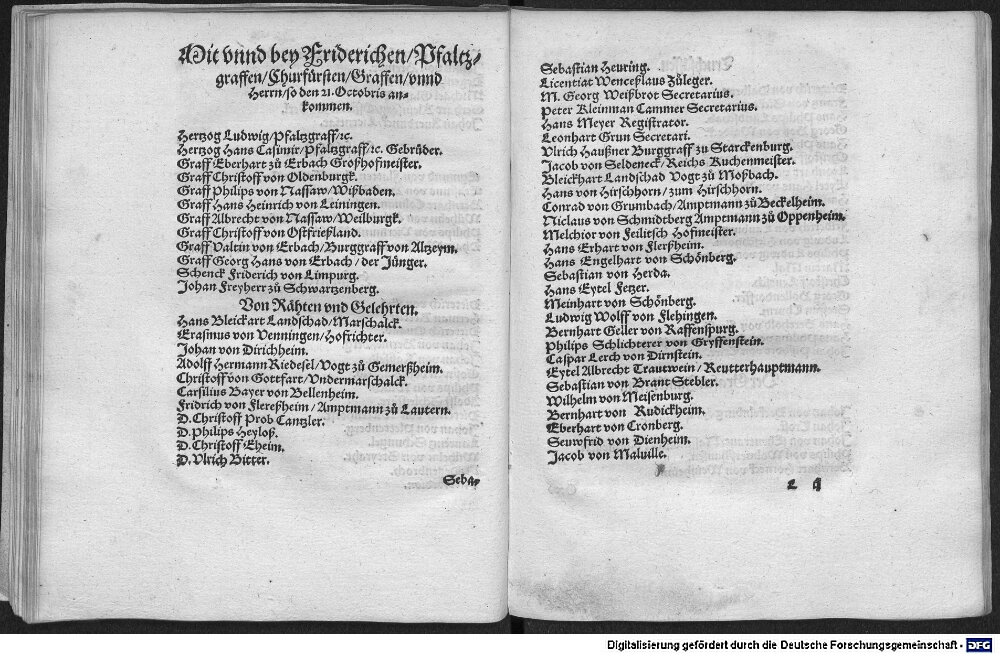 Mit vnnd bey Friderichen/Pfaltz-
graffen/Churfürsten/Graffen/vnnd
Herrn/so den 21. Octobris an-
kommen.
Hertzog Ludwig/Pfaltzgraff/ꝛc.
Hertzog Hans Casimir/Pfaltzgraff/ꝛc. Gebrüder.
Graff Eberhart zů Erbach Großhofmeister.
Graff Christoff von Oldenburgk.
Graff Philips von Nassaw/Wißbaden.
Graff Hans Heinrich von Leiningen.
Graff Albrecht von Nassaw/Weilburgk.
Graff Christoff von Ostfrießland.
Graff Valtin von Erbach/Burggraff von Altzeym.
Graff Georg Hans von Erbach/der Jünger.
Schenck Friderich von Limpurg.
Johan Freyherr zů Schwartzenberg.
Von Rähten vnd Gelehrten.
Hans Bleickart Landschad/Marschalck.
Erasmus von Venningen/Hofrichter.
Johan von Dirichheim.
Adolff Hermann Riedesel/Vogt zů Gemerßheim.
Christoff von Gottfart/Vndermarschalck.
Carsilius Bayer von Bellenheim.
Fridrich von Flereßheim/Amptmann zů Lautern.
D. Christoff Prob Cantzler.
D. Philips Heyloß.
D. Christoff Eheim.
D. Vlrich Bitter.
Seba-
Sebastian Heuring.
Licentiat Wenceßlaus Züleger.
M. Georg Weißbrot Secretarius.
Peter Kleinman Cammer Secretarius.
Hans Meyer Registrator.
Leonhart Grun Secretari.
Vlrich Haußner Burggraff zů Starckenburg.
Jacob von Seldeneck/Reichs Kuchenmeister.
Bleickhart Landschad Vogt zů Moßbach.
Hans von Hirschhorn/zum Hirschhorn.
Conrad von Grumbach/Amptmann zů Beckelheim.
Niclaus von Schmidtberg Amptmann zů Oppenheim.
Melchior von Feilitsch Hofmeister.
Hans Erhart von Flerßheim.
Hans Engelhart von Schönberg.
Sebastian von Herda.
Hans Eytel Fetzer.
Meinhart von Schönberg.
Ludwig Wolff von Flehingen.
Bernhart Geller von Raffenspurg.
Philips Schlichterer von Gryffenstein.
Caspar Lerch von Dirnstein.
Eytel Albrecht Trautwein/Reutterhauptmann.
Sebastian von Brant Stebler.
Wilhelm von Meisenburg.
Bernhart von Rudickheim.
Eberhart von Cronberg.
Seuwfrid von Dienheim.
Jacob von Malville.
Digitalisierung gefördert durch die Deutsche Forschungsgemeinschaft - DFG